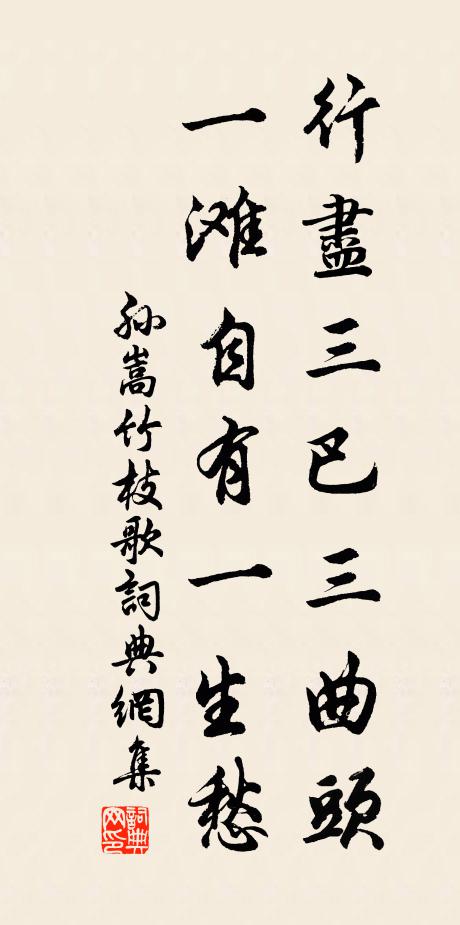 行盡三巴三曲頭
一滩自有一生愁
孙嵩竹枝歌詞典網集
詞典网印